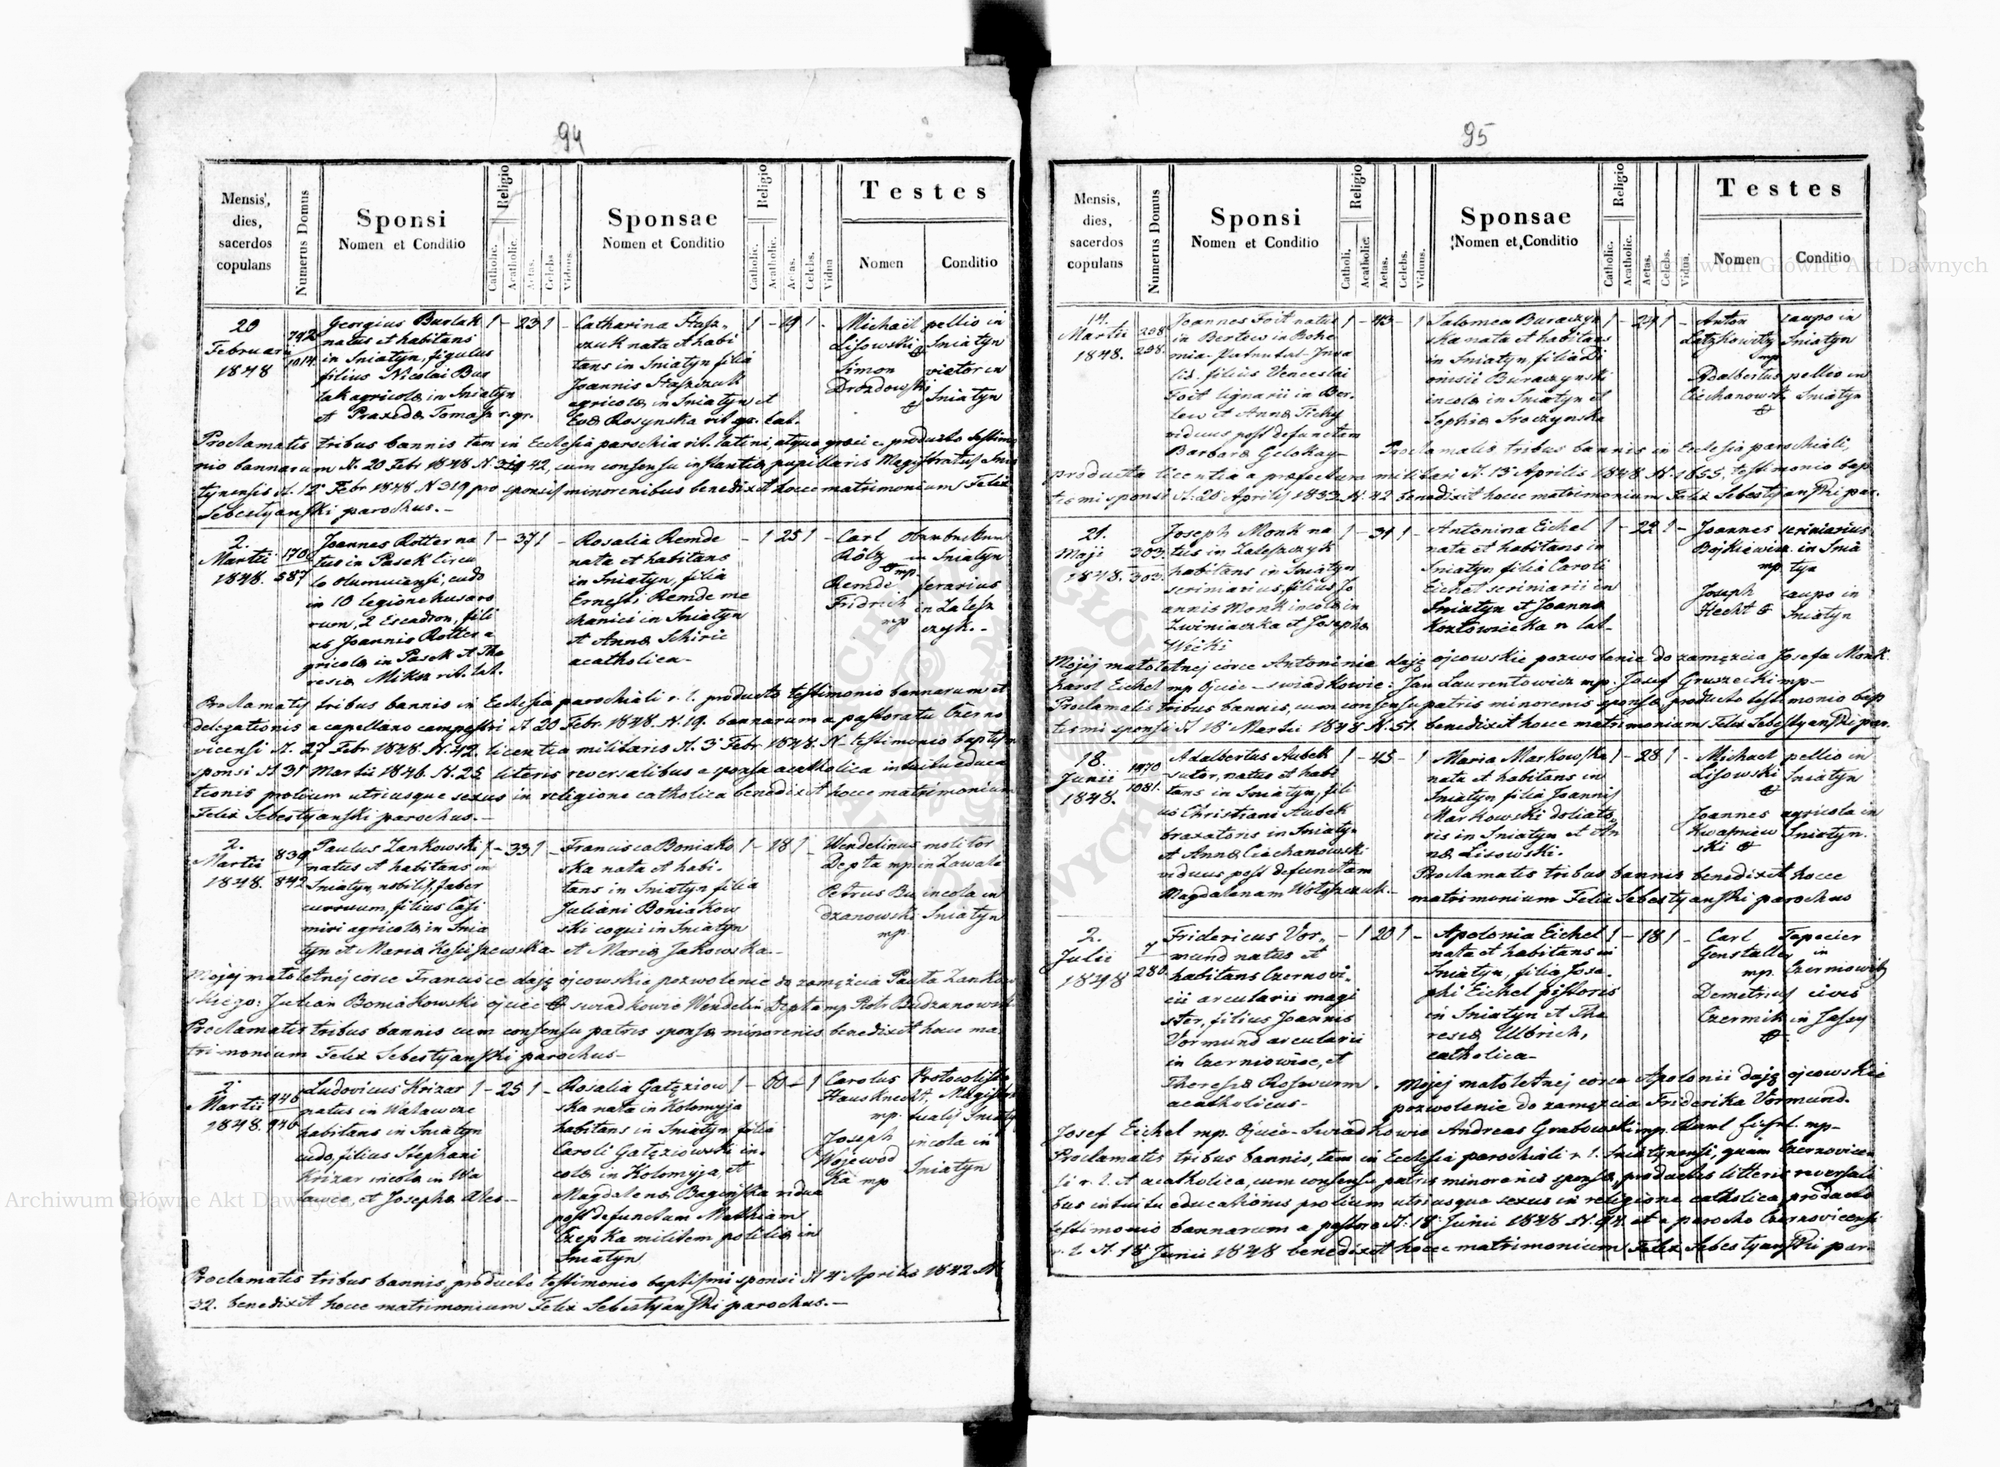 94
Mensis,
dies,
sacerdos
copulans
Numerus Domus
Sponsi
Nomen et Conditio
Religio
Catholic.
Acatholic.
Aetas.
Celebs
Viduus.
Sponsae
Nomen et Conditio
Religio
Catholic.
Acatholic.
Aetas.
Celebs.
Vidua
Testes
Nomen
Conditio
20
Februarii
1848
792
1014
Georgius Burlak
natus et habitans
in Sniatyn, figulus
filius Nicolai Bur
lak agricolæ in Sniatyn
et Praxedæ Tomasz r. gr.
1 - 23 1 -
Catharina Stasz-
czuk nata et habi
tans in Sniatyn filia
Joannis Staszczuk
agricolæ in Sniatyn et
Evæ Rosynska rit. gr. cat.
1 - 19 1 -
Michael
Lisowski
Simon
Drozdowski
pellio in
Sniatyn
viator in
Sniatyn
Proclamatis tribus bannis tam in Ecclesia parochia rit. latini, atque græci c. producto testimo
nio bannarum d. 20 Febr 1848 N. 42, cum consensu instantiæ pupillaris Magistratus Snia
tynensis d. 12 Febr 1848 N 319 pro sponsis minorenibus benedixit hocce matrimonium Felix
Sebestyanski parochus.-
2.
Martii
1848.
170
587
Joannes Rotter na
tus in Pasek Circu
lo olumucensi, cudo
in 10 legione husaro
rum, 2 Escadron, fili
us Joannis Rotter a
gricolæ in Pasek et The
resiæ Mikso rit. lat.
1 - 37 1 -
Rosalia Remde
nata et habitans
in Sniatyn, filia
Ernesti Remde me
chanici in Sniatyn
et Annæ Schiric
acatholica-
- 1 25 1
Carl
Rölz
mp.
Remde
Fridrich
mp
in Sniatyn
ferarius
in Zalesz
czyk.-
Proclamatis tribus bannis in Ecclesia parochiali r. l. producto testimonio bannarum et
delegationis a capellano campestri d. 20 Febr. 1848. N. 19. bannarum a pastoratu Czerno
vicensi d. 27 Febr 1848. N. 42. licentia militaris d. 3 Febr. 1848. N- testimonio baptismi
sponsi d 31 Martii 1846. N. 25 literis reversalibus a sponsa acatholica intuitu educa
tionis prolium utriusque sexus in religione catholica benedixit hocce matrimonium
Felix Sebestyanski parochus.-
2.
Martii
1848.
839
842
Paulus Zankowski
natus et habitans in
Sniatyn, nobilis, faber
curruum, filius Casi
miri agricolæ in Snia
tyn et Mariæ Kosciszewska
1 - 33 1 -
Francisca Boniako
ska nata et habi-
tans in Sniatyn filia
Juliani Boniakow
ski coqui in Sniatyn
et Mariæ Jakowska.-
1 - 18 1
Wendelinus
Depta mp.
Petrus Bu
dzanowski
mp.
molitor
in Zawale
incola in
Sniatyn
Mojej małoletnej córce Francisce daję ojcowskie pozwolenie do zamęzcia Pawła Zankow
skiego: Julian Boniakowski ojciec świadkowie Wendelin Depta mp Piotr Budzanowski
Proclamatis tribus bannis cum consensu patris sponsæ minorenis benedixit hocce ma
trimonium Felix Sebestyanski parochus-
2
Martii
1848.
946
946
Ludovicus Krizar
natus in Walawcze
habitans in Sniatyn
cudo, filius Stephani
Krizar incolæ in Wa
lawce, et Josephæ
1 - 25 1 -
Rosalia Gałęziow
ska nata in Kolomyja
habitans in Sniatyn filia
Caroli Gałęziowski in-
colæ in Kolomyja, et
Magdalenæ Baginska vidua
post defunctum Mathiam
Czepka militem politiæ in
Sniatyn
1 - 60 - 1
Carolus
Hausknecht,
mp.
Joseph
Wojewod
ka mp
Protocolista
Magistra
tualis Sniatyn
incola in
Sniatyn
Proclamatis tribus bannis, producto testimonio baptismi sponsi d 4 Aprilis 1842 N
32. benedixit hocce matrimonium Felix Sebestyanski parochus.-
95
Mensis,
dies,
sacerdos
copulans
Numerus Domus
Sponsi
Nomen et Conditio
Religio
Catholi.
Acatholic.
Aetas.
Celebs.
Viduus.
Sponsae
Nomen et Conditio
Religio
Catholic.
Acatholic.
Aetas.
Celebs.
Vidua.
Testes
Nomen
Conditio
14.
Martii
1848.
298
298.
Joannes Foit natus
in Bertow in Bohe
mia Patental Inva
lid. filius Venceslai
Foit lignarii in Ber
tow et Annæ Tichy
viduus post defunctam
Barbaram
1 - 43 - 1
Salomea Buraczyn
ska nata et habitans
in Sniatyn, filia Di
onisii Buraczynski
incolæ in Sniatyn et
Sophiæ Sroczynska
1 - 24 1 -
Anton
mp
Adalbertus
Ciechanowski
caupo in
Sniatyn
pellio in
Sniatyn
Proclamatis tribus bannis in Ecclesia parochiali,
producta licentia a præfectura militari d. 13 Aprilis 1848 N. 1855, testimonio bap
tismi sponsi d. 20 Aprilis 1833. N. 42 benedixit hocce matrimonium Felix Sebestyanski par.
21.
Maji
1848.
303
303.
Joseph Monk na
tus in Zaleszczyk
habitans in Sniatyn
scriniarius, filius Jo
annis Monk incolæ in
Zwiniaczka et Josephæ
Wicki
1 - 34 1 -
Antonina Eichel
nata et habitans in
Sniatyn filia Caroli
Eichel scriniarii in
Sniatyn et Joannæ
Kozłowiecka r. lat-
1 - 22 1 -
Joannes
Bojkiewicz
mp
Joseph
Hecht
scriniarius
in Snia
tyn
caupo in
Sniatyn
Mojej małoletnej córce Antoninie daję ojcowskie pozwolenie do zamęzcia Josefa Monk
Karol Eichel mp Ojciec - świadkowie: Jan Laurentowicz mp. Josef Gruszecki mp-
Proclamatis tribus bannis, cum consensu patris minorenis sponsæ, producto testimonio bap
tismi sponsi d 18 Martii 1848 N. 51. benedixit hocce matrimonium Felix Sebestyanski par.
18.
Junii
1848.
1070
1081.
Adalbertus Aubek
sutor, natus et habi
tans in Sniatyn, fili
us Christiani Aubek
braxatoris in Sniatyn
et Annæ Ciechanowski
viduus post defunctam
Magdalenam
1 - 45 - 1
Maria Markowska
nata et habitans in
Sniatyn filia Joannis
Markowski doliato
ris in Sniatyn et An
næ Lisowski.
1 - 28 1
Michael
Lisowski
Joannes
Kwasniew
ski
pellio in
Sniatyn
agricola in
Sniatyn.
Proclamatis tribus bannis benedixit hocce
matrimonium Felix Sebestyanski parochus
2.
Julii
1848
7
280.
Fridericus Vor-
mund natus et
habitans Czernovi-
cii arcularii magi
ster, filius Joannis
Vormund arcularii
in Czerniowiec, et
Theresiæ Rosswurm
acatholicus-
- 1 20 1
Apolonia Eichel
nata et habitans in
Sniatyn, filia Jose-
phi Eichel pistoris
in Sniatyn et The
resiæ Ulbrich,
catholica-
1 - 18 1 -
Carl
Genstaller
mp.
Demetrius
Czermik
Tapecier
in
Czerniowitz
civis
in Jassy
Mojej małoletnej córce Apolonii daję ojcowskie
pozwolenie do zamęzcia Friderika Vormund.
Josef Eichel mp. Ojciec - Swiadkowie Andreas Grabowski mp. Karl mp-
Proclamatis tribus bannis, tam in Ecclesia parochiali r. l. Sniatynensi, quam Czernovicen
si r. l. et acatholica, cum consensu patris minorenis sponsæ, productis litteris reversali
bus intuitu educationis prolium utriusque sexus in religione catholica, producto
testimonio bannarum a pastore d. 18 Junii 1848 N. 94 et a parocho Czernovicensi
r. l. d. 18 Junii 1848 benedixit hocce matrimonium Felix Sebestyanski par.
Archiwum Główne Akt Dawnych
Archiwum Główne Akt Dawnych